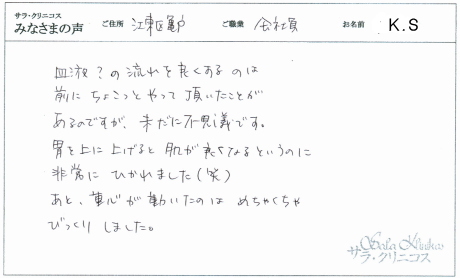 サラ・クリニコス
みなさまの声
ご住所 江東区亀戸
ご職業 会社員
お名前 K.S
血液?の流れを良くするのは
前にちょこっとやって頂いたことが
あるのですが、未だに不思議です。
胃を上に上げると肌が良くなるというのに
非常に ひかれました(笑)
あと、重心が動いたのは めちゃくちゃ
びっくり しました。
Sala Klinikos
サラ・クリニコス